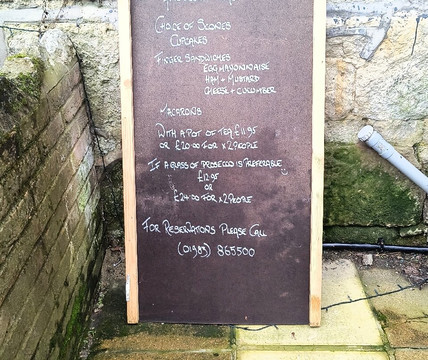 CHOICE OF SCONES
CUPCAKES
FINGER SANDWICHES
EGG MAYONNAISE
HAM + MUSTARD
CHEESE + CUCUMBER
MACARONS
WITH A POT OF TEA £11.95
OR £20.00 FOR x2 PEOPLE
IF A GLASS OF PROSECCO IS PREFERABLE
£12.95
OR
£24.00 FOR x2 PEOPLE
FOR RESERVATIONS PLEASE CALL
(01983) 865500